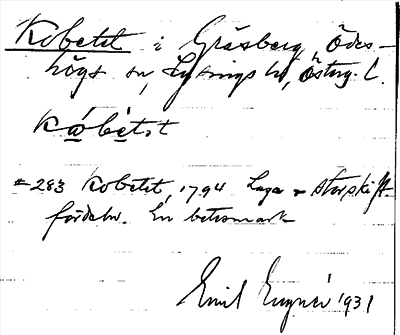 Kobetet i Gräsberg, Ödes-
högs sn, Lysings hd, Österg. l.
kábétət
# 283 Kobetet, 1794 Laga + storskift.
fördeln. En betesmark
Emil 1931